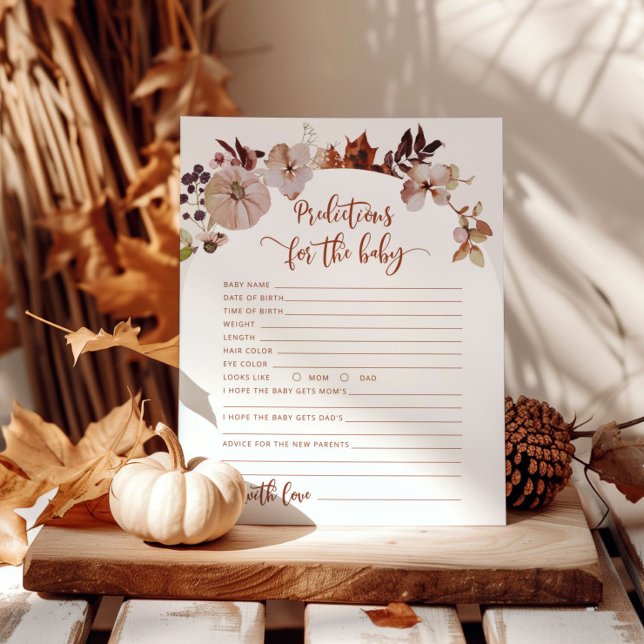 Predictions
for the baby
BABY NAME
DATE OF BIRTH
TIME OF BIRTH
WEIGHT
LENGTH
HAIR COLOR
EYE COLOR
LOOKS LIKE MOM DAD
I HOPE THE BABY GETS MOM'S
I HOPE THE BABY GETS DAD'S
ADVICE FOR THE NEW PARENTS
with love